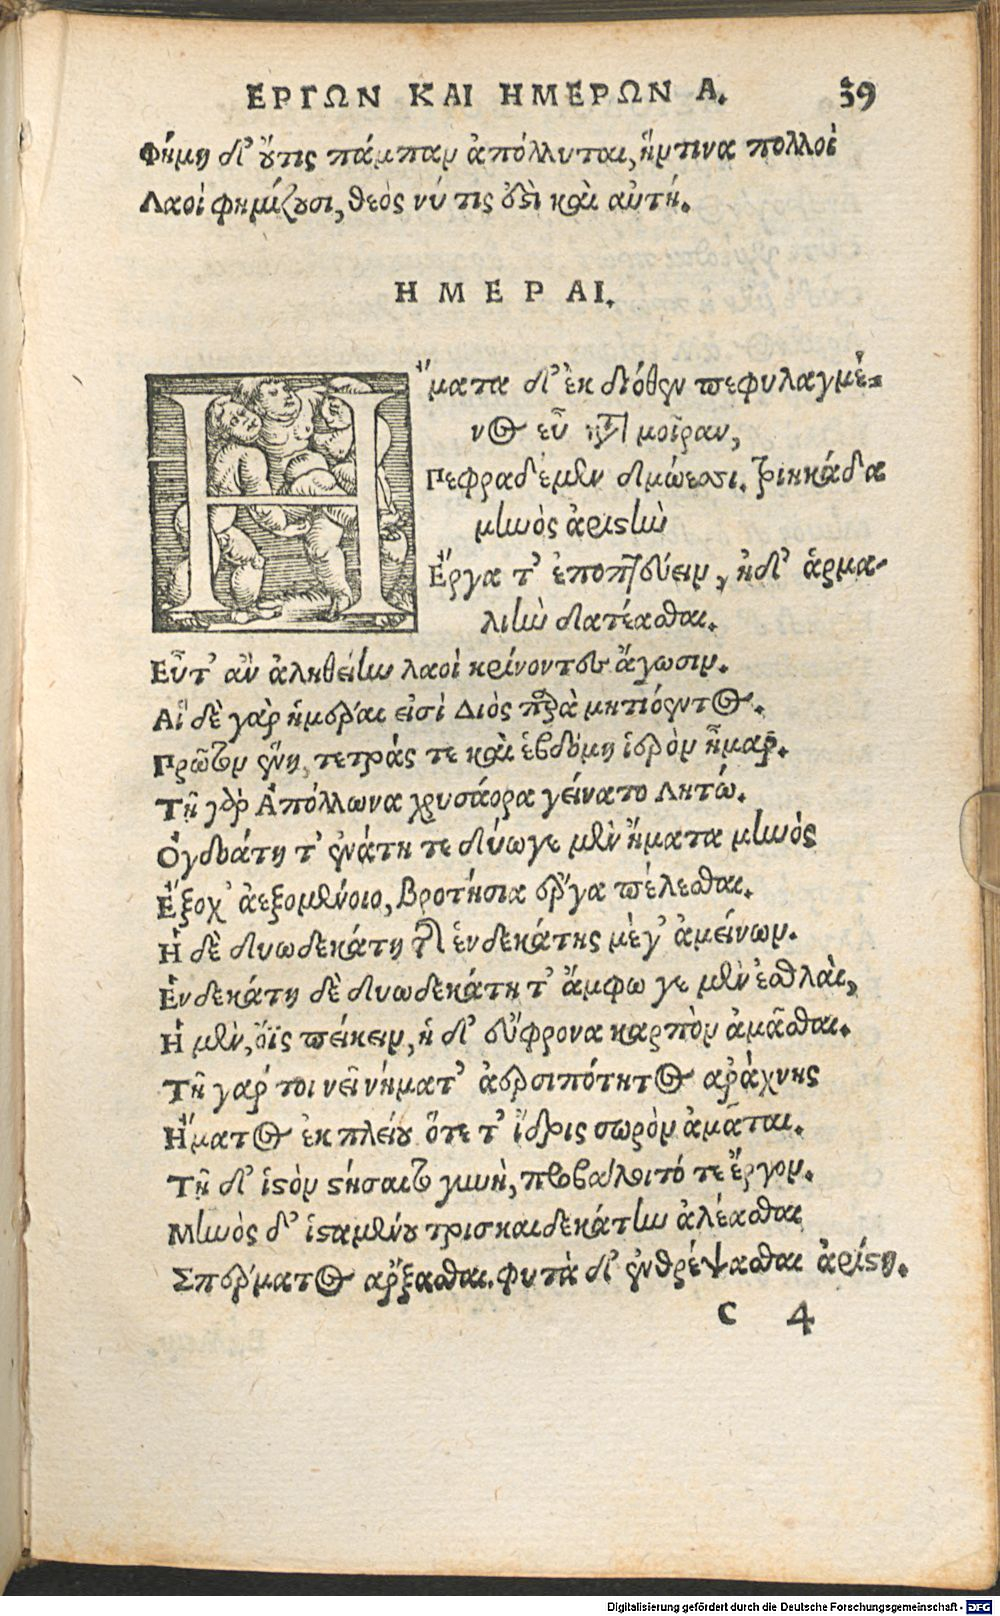 ΕΡΓΩΝ ΚΑΙ ΗΜΕΡΩΝ Α. 39
Φήμη δ' οὔτις πάμπαν ἀπόλλυται, ἥντινα πολλοὶ
Λαοὶ φημίζουσι, θεὸς νύ τις ὀξὶ καὶ αὐτή.
ΗΜΕΡΑΙ.
Ἤματα δ' ἐκ διόθεν πεφυλαγμέ-
νος εὖ κατὰ μοῖραν,
Πεφραδέμεν δμώεσσι. τριηκάδα
μηνὸς ἀρίστην
Ἔργα τ' ἐποπτεύειν, ἠδ' ἁρμα-
λιὴν δατέασθαι.
Εὖτ' ἂν ἀληθείην λαοὶ κρίνοντες ἄγωσιν.
Αἵδε γὰρ ἡμέραι εἰσὶ Διὸς παρὰ μητιόεντος.
Πρῶτον ἔνη, τετράς τε καὶ ἑβδόμη ἱερὸν ἦμαρ.
Τῇ γὰρ Ἀπόλλωνα χρυσάορα γείνατο Λητώ.
Ὀγδοάτη τ' ἐνάτη τε δύωγε μὲν ἤματα μηνὸς
Ἔξοχ' ἀεξομένοιο, βροτήσια ἔργα πέλεσθαι.
Ἡ δὲ δυωδεκάτη τῆς ἑνδεκάτης μέγ' ἀμείνων.
Ἑνδεκάτη δὲ δυωδεκάτη τ' ἄμφω γε μὲν ἐσθλαὶ,
Ἡ μὲν, ὄϊς πείκειν, ἡ δ' εὔφρονα καρπὸν ἀμᾶσθαι.
Τῇ γάρ τοι νεῖ νήματ' ἀερσιπότητος ἀράχνης
Ἤματος ἐκ πλείου ὅτε τ' ἴδρις σωρὸν ἀμᾶται.
Τῇ δ' ἱστὸν στήσαιτο γυνὴ, προβάλοιτό τε ἔργον.
Μηνὸς δ' ἱσταμένου τρισκαιδεκάτην ἀλέασθαι
Σπέρματος ἄρξασθαι. φυτὰ δ' ἐνθρέψασθαι ἀρίστη.
C 4
Digitalisierung gefördert durch die Deutsche Forschungsgemeinschaft - DFG